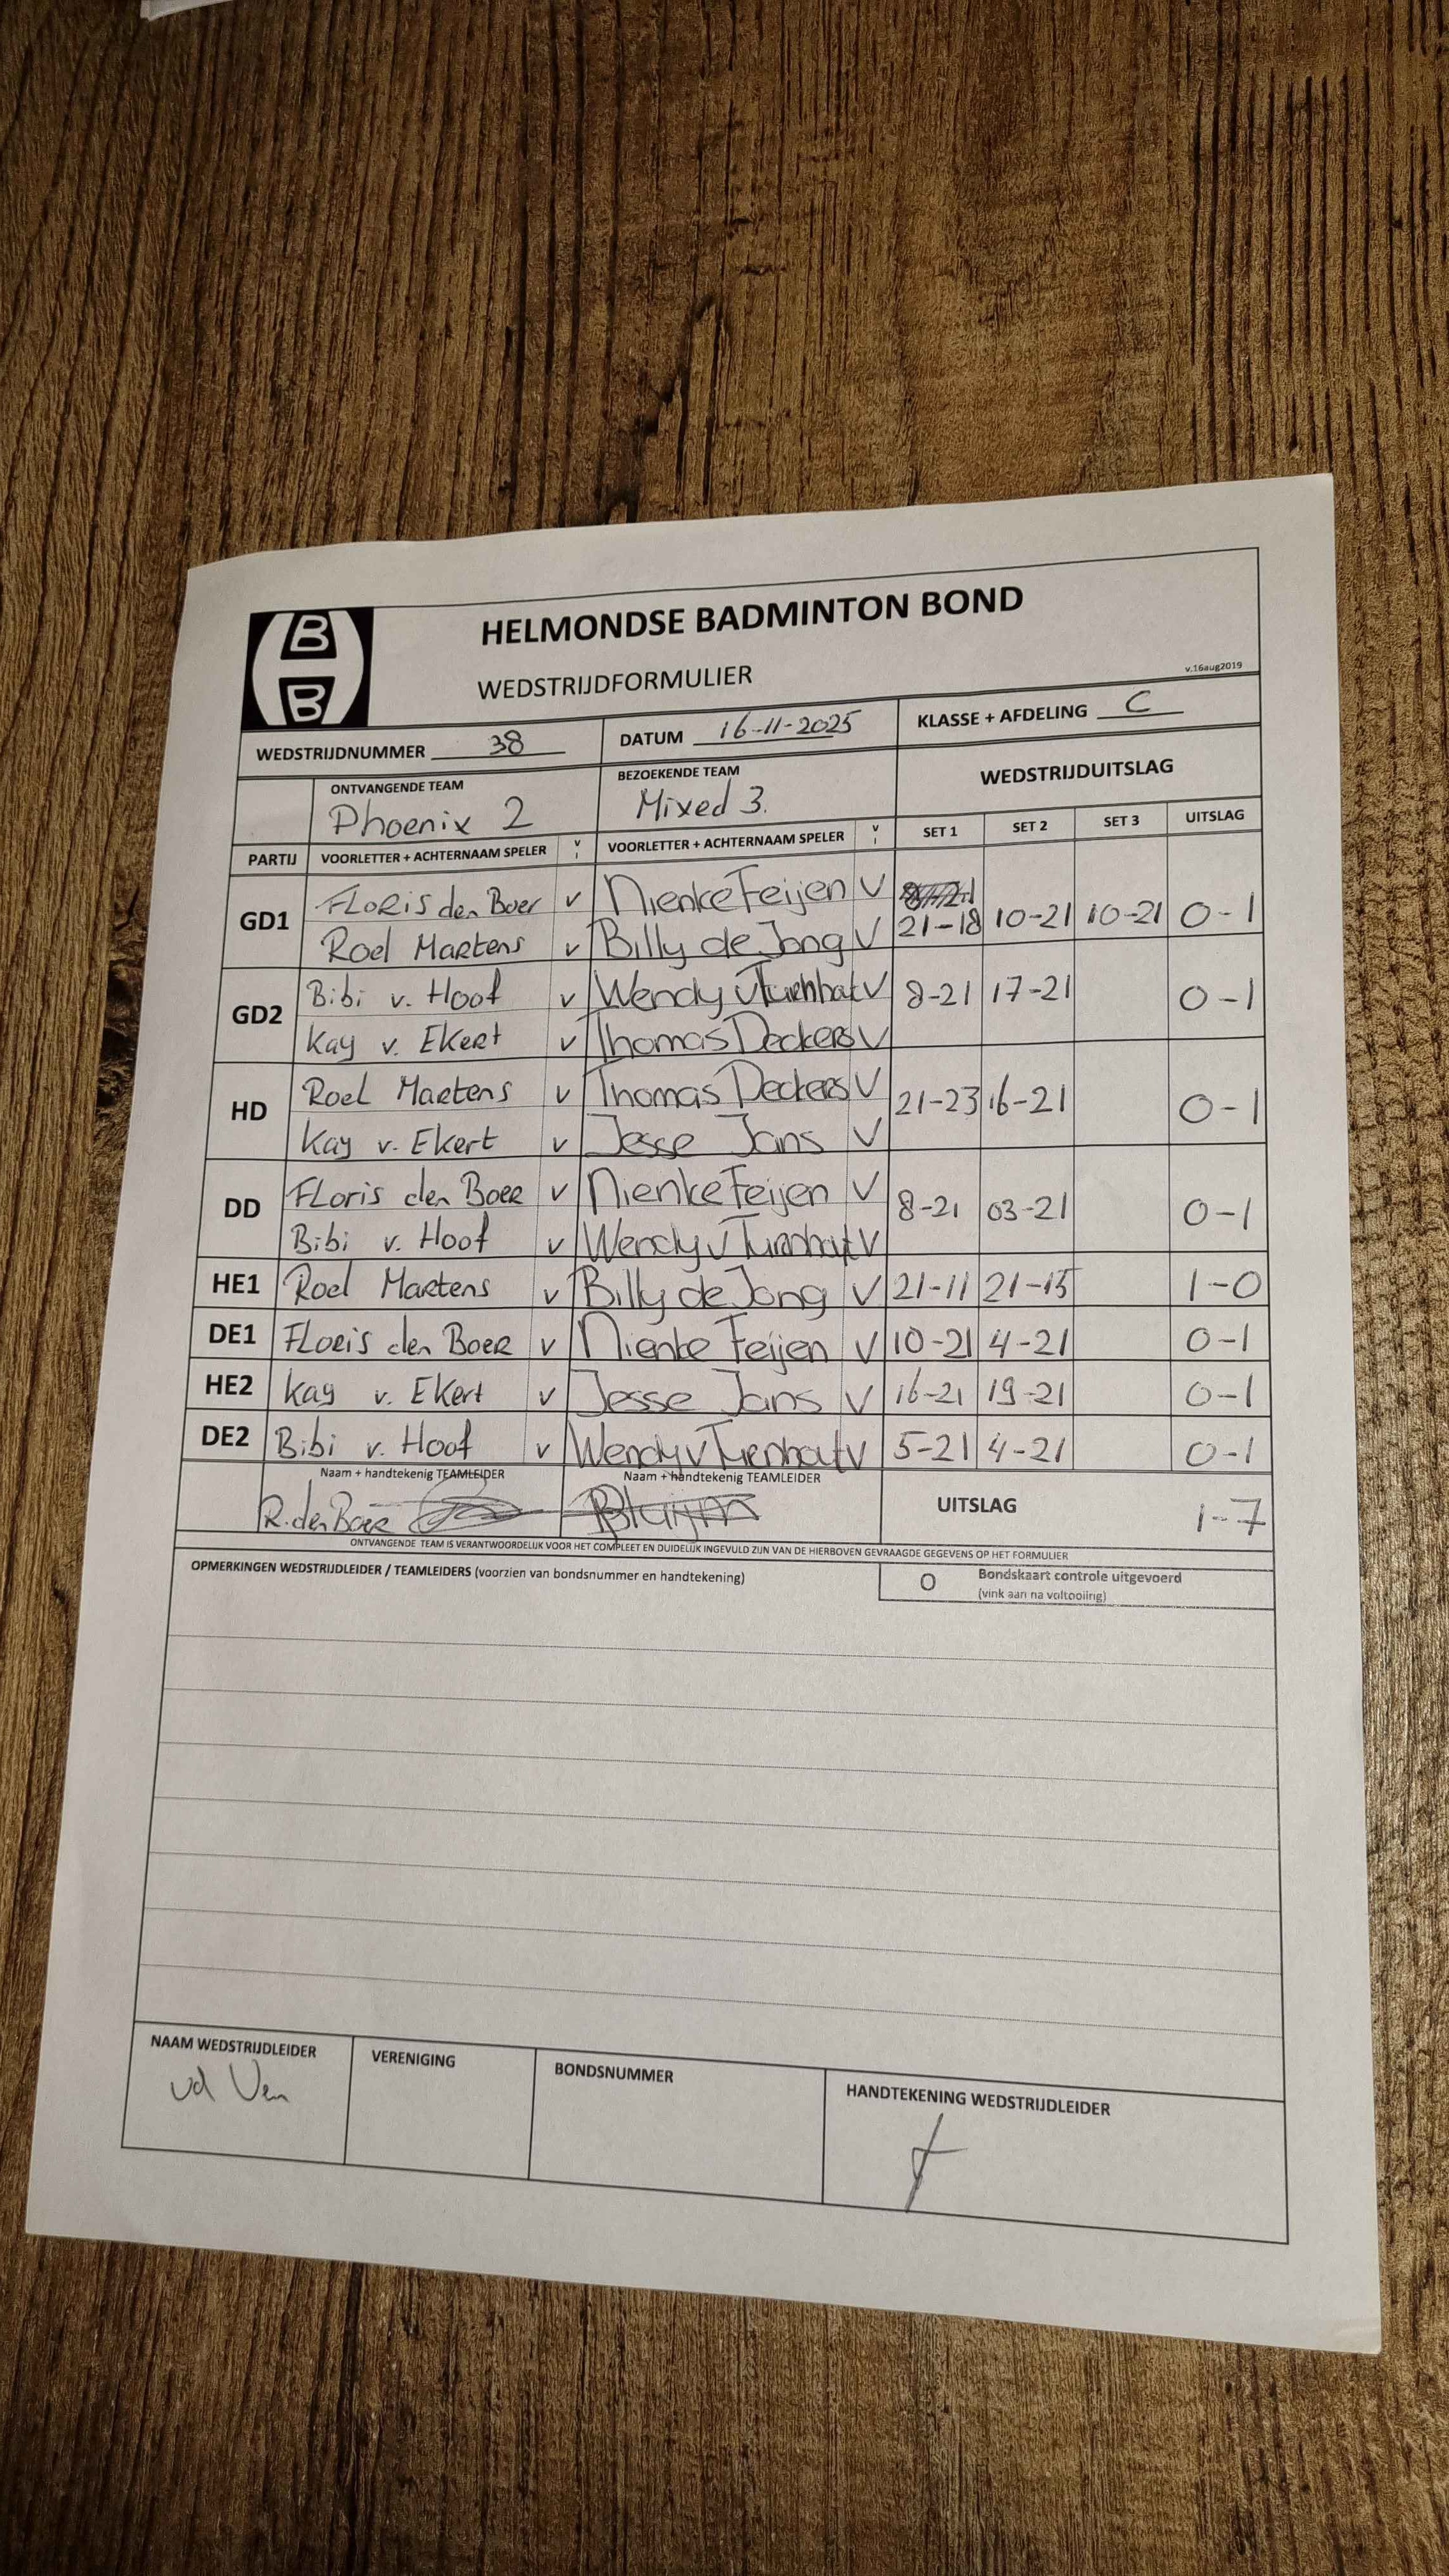 B
B
HELMONDSE BADMINTON BOND
WEDSTRIJDFORMULIER
v.16aug2019
WEDSTRIJDNUMMER 38 DATUM 16-11-2025 KLASSE + AFDELING C
ONTVANGENDE TEAM BEZOEKENDE TEAM WEDSTRIJDUITSLAG
Phoenix 2 Mixed 3.
PARTIJ VOORLETTER + ACHTERNAAM SPELER V I VOORLETTER + ACHTERNAAM SPELER V I SET 1 SET 2 SET 3 UITSLAG
GD1 FLORIS den Boer v Nienke Feijen V
Roel Martens v Billy de Jong V 21-18 10-21 10-21 0-1
GD2 Bibi v. Hoof v Wendy v Turnhout V 8-21 17-21 0-1
Kay v. Ekert v Thomas Deckers V
HD Roel Martens v Thomas Deckers V 21-23 16-21 0-1
Kay v. Ekert v Jesse Jans V
DD FLoris den Boer v Nienke Feijen V 8-21 03-21 0-1
Bibi v. Hoof v Wendy v Turnhout V
HE1 Roel Martens v Billy de Jong V 21-11 21-15 1-0
DE1 FLoris den Boer v Nienke Feijen V 10-21 4-21 0-1
HE2 Kay v. Ekert v Jesse Jans V 16-21 19-21 0-1
DE2 Bibi v. Hoof v Wendy v Turnhout V 5-21 4-21 0-1
Naam + handtekenig TEAMLEIDER Naam + handtekenig TEAMLEIDER
R. den Boer UITSLAG 1-7
ONTVANGENDE TEAM IS VERANTWOORDELIJK VOOR HET COMPLEET EN DUIDELIJK INGEVULD ZIJN VAN DE HIERBOVEN GEVRAAGDE GEGEVENS OP HET FORMULIER
OPMERKINGEN WEDSTRIJDLEIDER / TEAMLEIDERS (voorzien van bondsnummer en handtekening)
O Bondskaart controle uitgevoerd
(vink aan na voltooiing)
NAAM WEDSTRIJDLEIDER VERENIGING BONDSNUMMER HANDTEKENING WEDSTRIJDLEIDER
vd Ven